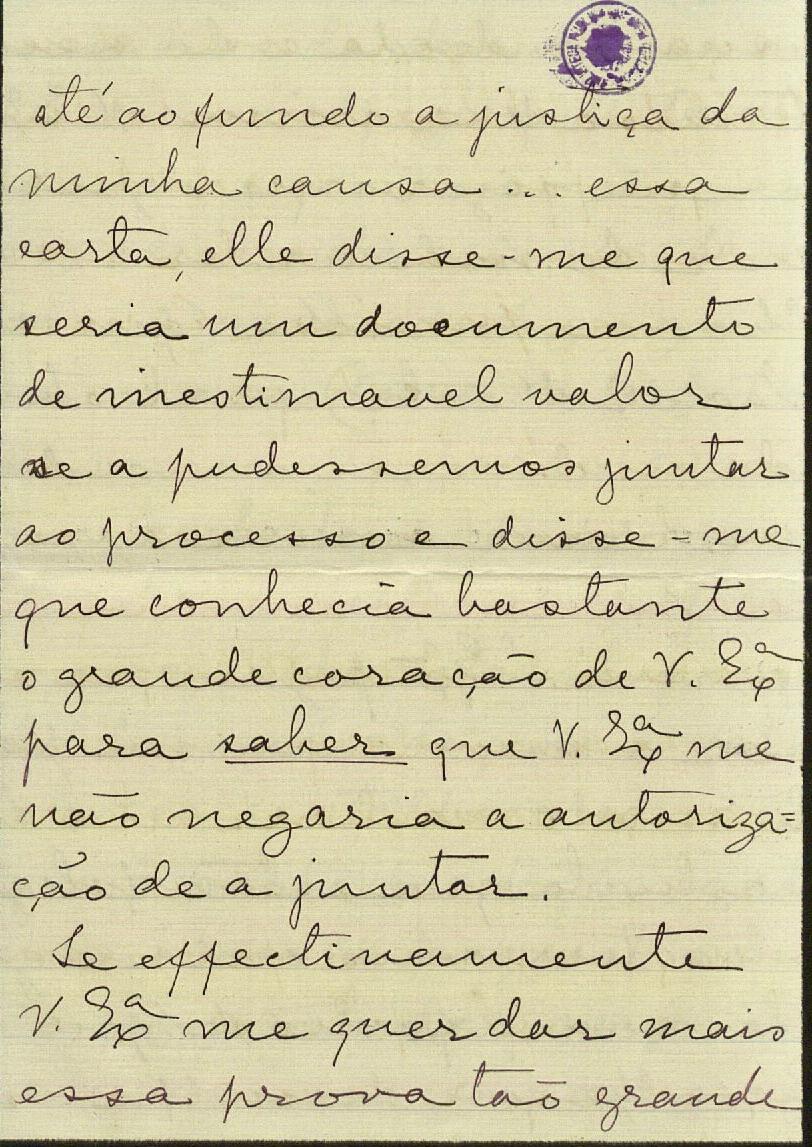 até ao fundo a justiça da
minha causa ... essa
carta, elle disse-me que
seria um documento
de inestimavel valor
se a pudessemos juntar
ao processo e disse-me
que conhecia bastante
o grande coração de V. Exª
para saber que V. Exª me
não negaria a autoriza=
ção de a juntar.
Se effectivamente
V. Exª me quer dar mais
essa prova tão grande